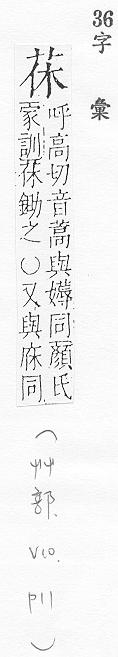 36
字彙
茠
呼高切音蒿與薅同顏氏
家訓茠鋤之〇又與庥同
(艸部. V10. P11)